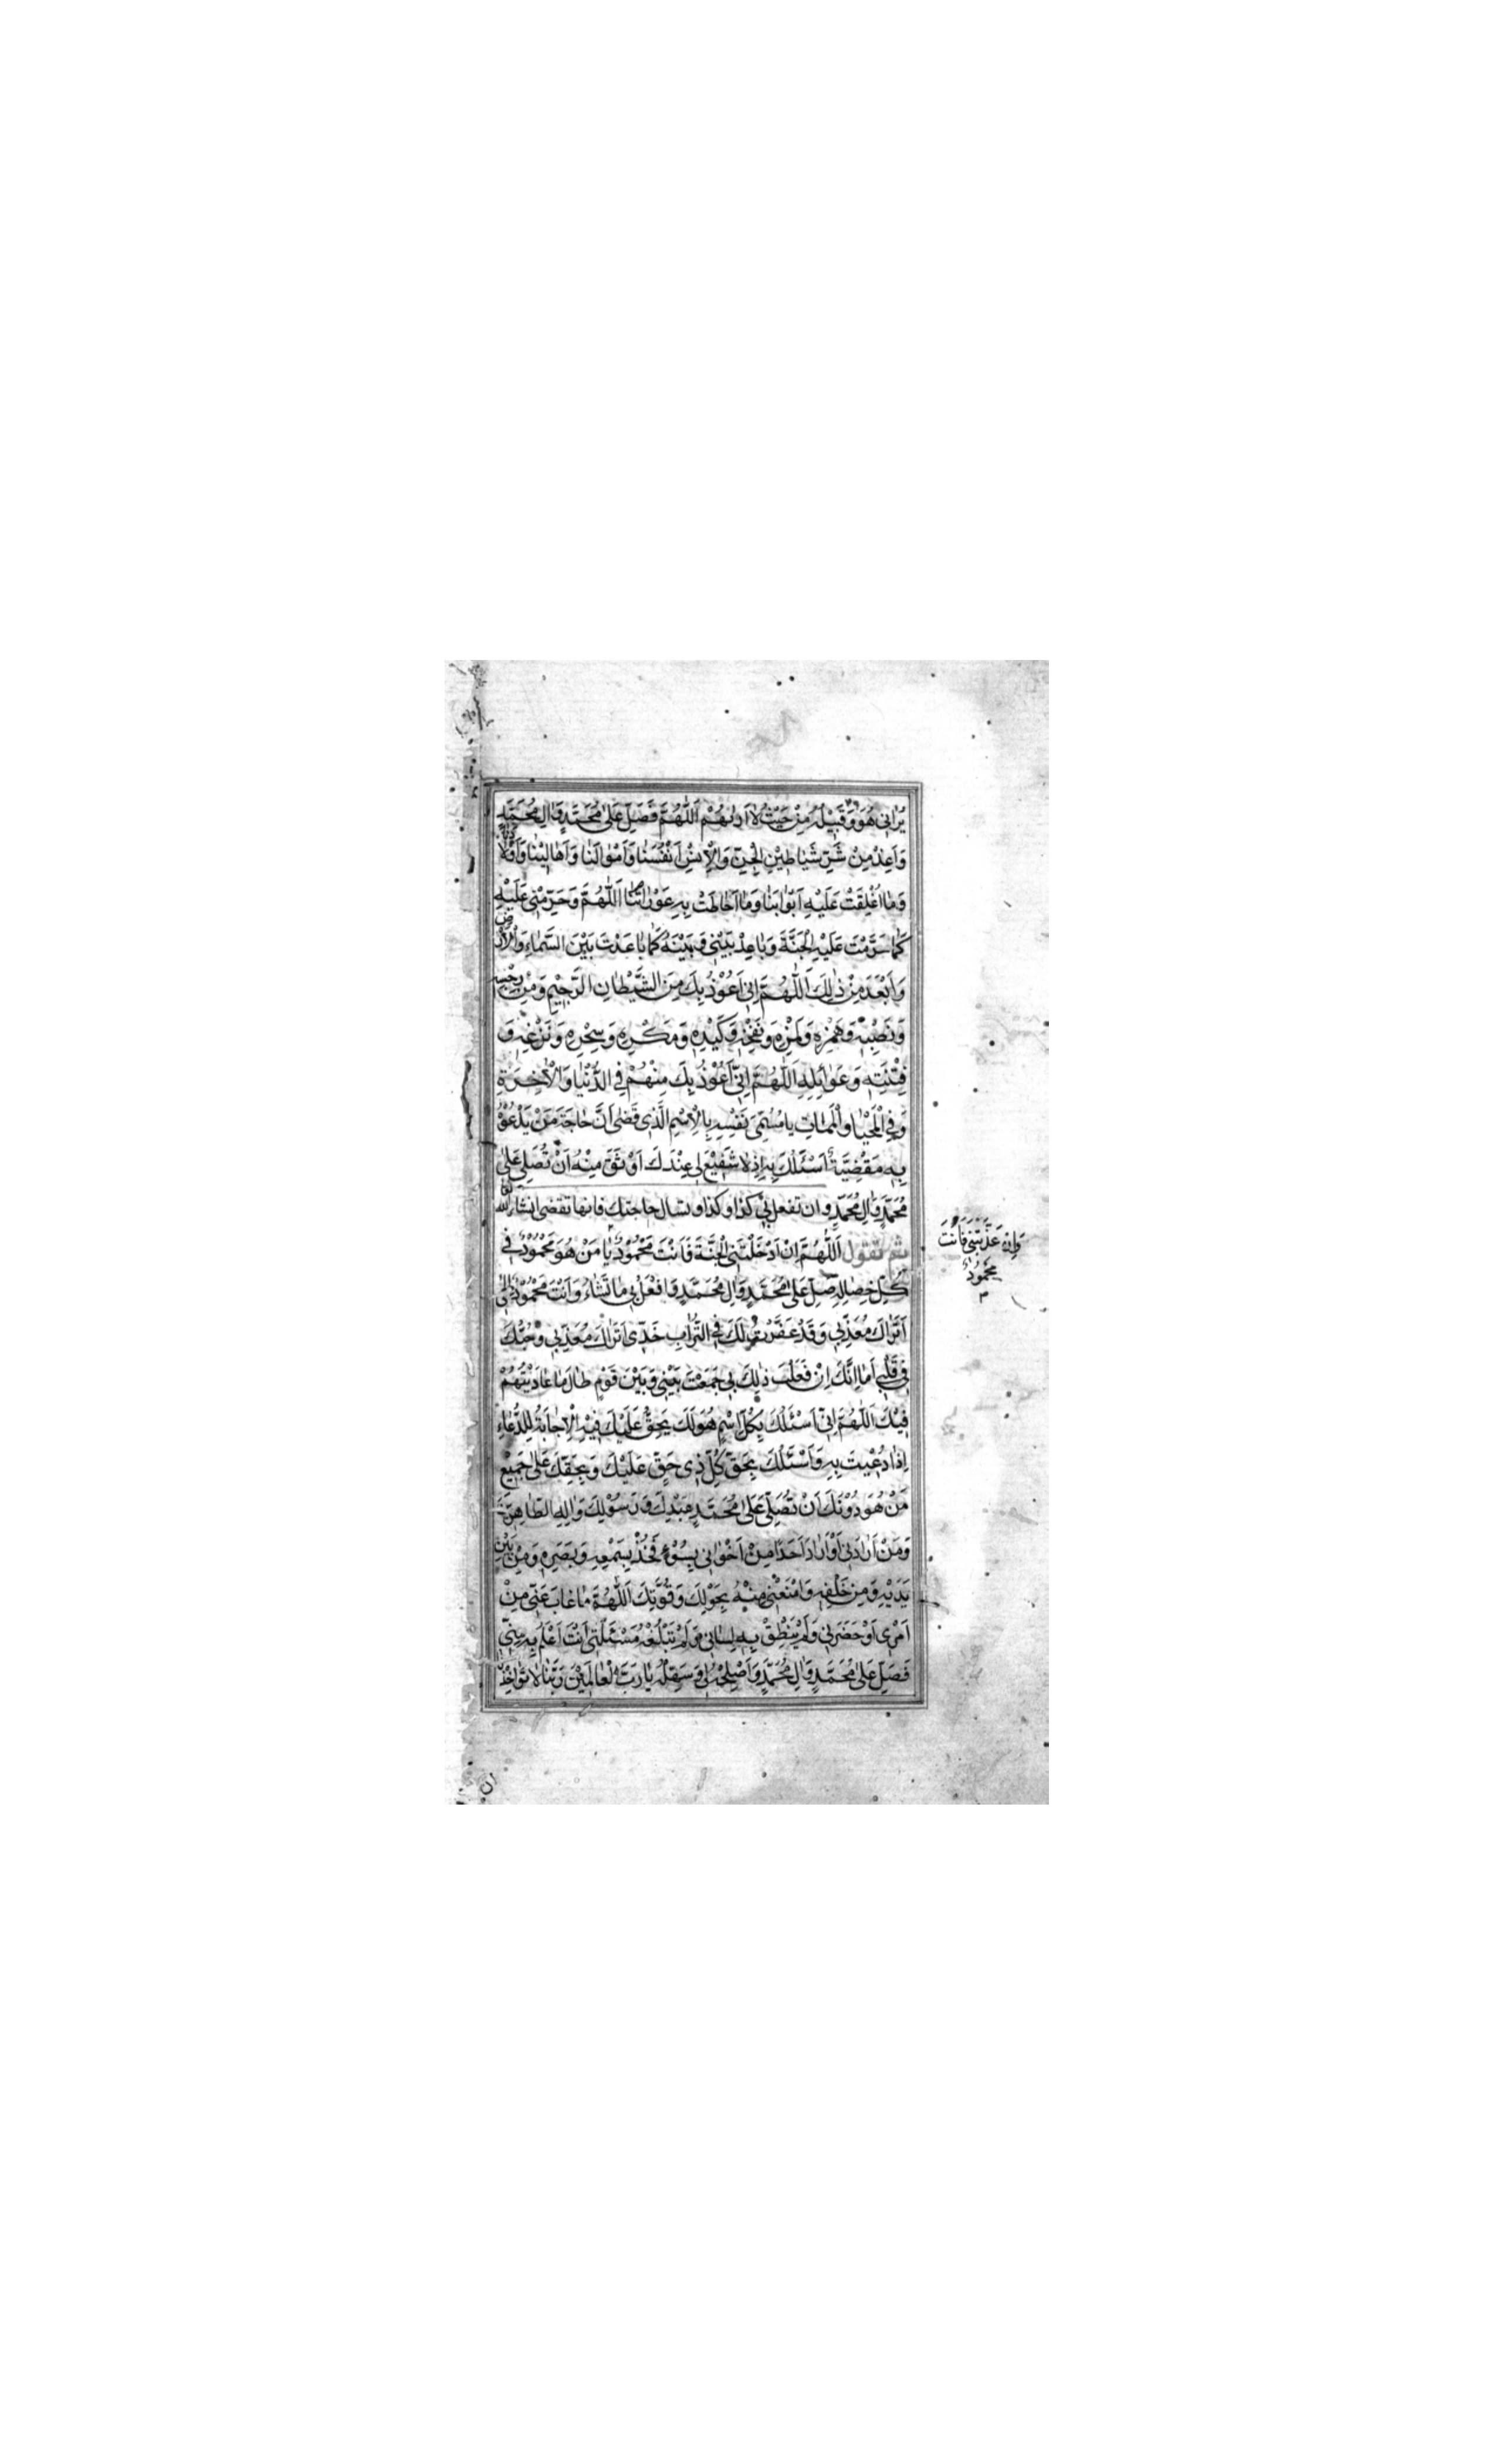 يَرٰانِى هُوَ وَقَبِيْلُهُ مِنْ حَيْثُ لاٰ اَرٰىهُمْ اَللّٰهُمَّ فَصَلِّ عَلىٰ مُحَمَّدٍ وَاٰلِ مُحَمَّدٍ
وَاَعِذْ مِنْ شَرِّ شَيٰاطِيْنِ الْجِنِّ وَالْاِنْسِ اَنْفُسَنٰا وَاَمْوٰالَنٰا وَاَهٰالِيْنٰا وَاَوْلاٰدَنٰا
وَمٰا اُغْلِقَتْ عَلَيْهِ اَبْوٰابُنٰا وَمٰا اَحٰاطَتْ بِهِ عَوْرٰاتُنٰا اَللّٰهُمَّ وَحَرِّمْنِى عَلَيْهِ
كَمٰا حَرَّمْتَ عَلَيْهِ الْجَنَّةَ وَبٰاعِدْ بَيْنِى وَبَيْنَهُ كَمٰا بٰاعَدْتَ بَيْنَ السَّمٰاءِ وَالْاَرْضِ
وَاَبْعَدَ مِنْ ذٰلِكَ اَللّٰهُمَّ اِنِّى اَعُوْذُ بِكَ مِنَ الشَّيْطٰانِ الرَّجِيْمِ وَمِنْ رِجْسِهِ
وَنَصْبِهِ وَهَمْزِهِ وَلَمْزِهِ وَنَفْخِهِ وَكَيْدِهِ وَمَكْرِهِ وَسِحْرِهِ وَنَزْغِهِ وَ
فِتْنَتِهِ وَغَوٰائِلِهِ اَللّٰهُمَّ اِنِّى اَعُوْذُ بِكَ مِنْهُمْ فِى الدُّنْيٰا وَالْاٰخِرَةِ
وَفِى الْمَحْيٰا وَالْمَمٰاتِ يٰا مُسَمِّىَ نَفْسِهِ بِالْاِسْمِ الَّذِى قَضٰى اَنَّ حٰاجَةَ مَنْ يَدْعُوْهُ
بِهِ مَقْضِيَّةٌ اَسْئَلُكَ بِهِ اِذْ لاٰ شَفِيْعَ لِى عِنْدَكَ اَوْثَقَ مِنْهُ اَنْ تُصَلِّىَ عَلىٰ
مُحَمَّدٍ وَاٰلِ مُحَمَّدٍ وان تفعل بى كذا وكذا وتسال حاجتك فانها تقضى انشاء الله
ثم تقول اَللّٰهُمَّ اِنْ اَدْخَلْتَنِى الْجَنَّةَ فَاَنْتَ مَحْمُوْدٌ يٰا مَنْ هُوَ مَحْمُوْدٌ فِى
وَاِنْ عَذَّبْتَنِى فَاَنْتَ
مَحْمُوْدٌ
كُلِّ خِصٰالِهِ صَلِّ عَلىٰ مُحَمَّدٍ وَاٰلِ مُحَمَّدٍ وَافْعَلْ بِى مٰا تَشٰاءُ وَاَنْتَ مَحْمُوْدٌ اِلٰهِى
اَتَرٰاكَ مُعَذِّبِى وَقَدْ عَفَّرْتُ لَكَ فِى التُّرٰابِ خَدِّى اَتَرٰاكَ مُعَذِّبِى وَحُبُّكَ
فِى قَلْبِى اَمٰا اِنَّكَ اِنْ فَعَلْتَ ذٰلِكَ بِى جَمَعْتَ بَيْنِى وَبَيْنَ قَوْمٍ طٰالَ مٰا عٰادَيْتُهُمْ
فِيْكَ اَللّٰهُمَّ اِنِّى اَسْئَلُكَ بِكُلِّ اسْمٍ هُوَ لَكَ يَحِقُّ عَلَيْكَ فِيْهِ الْاِجٰابَةُ لِلدُّعٰاءِ
اِذٰا دُعِيْتَ بِهِ وَاَسْئَلُكَ بِحَقِّ كُلِّ ذِى حَقٍّ عَلَيْكَ وَبِحَقِّكَ عَلىٰ جَمِيْعِ
مَنْ هُوَ دُوْنَكَ اَنْ تُصَلِّىَ عَلىٰ مُحَمَّدٍ عَبْدِكَ وَرَسُوْلِكَ وَاٰلِهِ الطّٰاهِرِيْنَ
وَمَنْ اَرٰادَنِى اَوْ اَرٰادَ اَحَدًا مِنْ اَخْوٰانِى بِسُوْءٍ فَخُذْ بِسَمْعِهِ وَبَصَرِهِ وَمِنْ بَيْنِ
يَدَيْهِ وَمِنْ خَلْفِهِ وَامْنَعْنِى مِنْهُ بِحَوْلِكَ وَقُوَّتِكَ اَللّٰهُمَّ مٰا غٰابَ عَنِّى مِنْ
اَمْرِى اَوْ حَضَرَنِى وَلَمْ يَنْطِقْ بِهِ لِسٰانِى وَلَمْ تَبْلُغْهُ مَسْئَلَتِى اَنْتَ اَعْلَمُ بِهِ مِنِّى
فَصَلِّ عَلىٰ مُحَمَّدٍ وَاٰلِ مُحَمَّدٍ وَاَصْلِحْهُ لِى وَسَهِّلْهُ يٰا رَبَّ الْعٰالَمِيْنَ رَبَّنٰا لاٰ تُؤٰاخِذْنٰا
ان